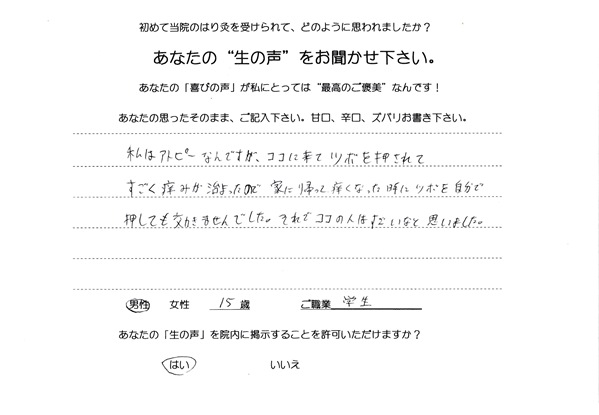 初めて当院のはり灸を受けられて、どのように思われましたか？
あなたの“生の声”をお聞かせ下さい。
あなたの「喜びの声」が私にとっては“最高のご褒美”なんです！
あなたの思ったそのまま、ご記入下さい。甘口、辛口、ズバリお書き下さい。
私はアトピーなんですが、ココに来てツボを押されて
すごく痒みが治まったので 家に帰って痒くなった時にツボを自分で
押しても効きませんでした。それでココの人はすごいなと思いました。
男性 女性 15歳 ご職業 学生
あなたの「生の声」を院内に掲示することを許可いただけますか？
はい いいえ